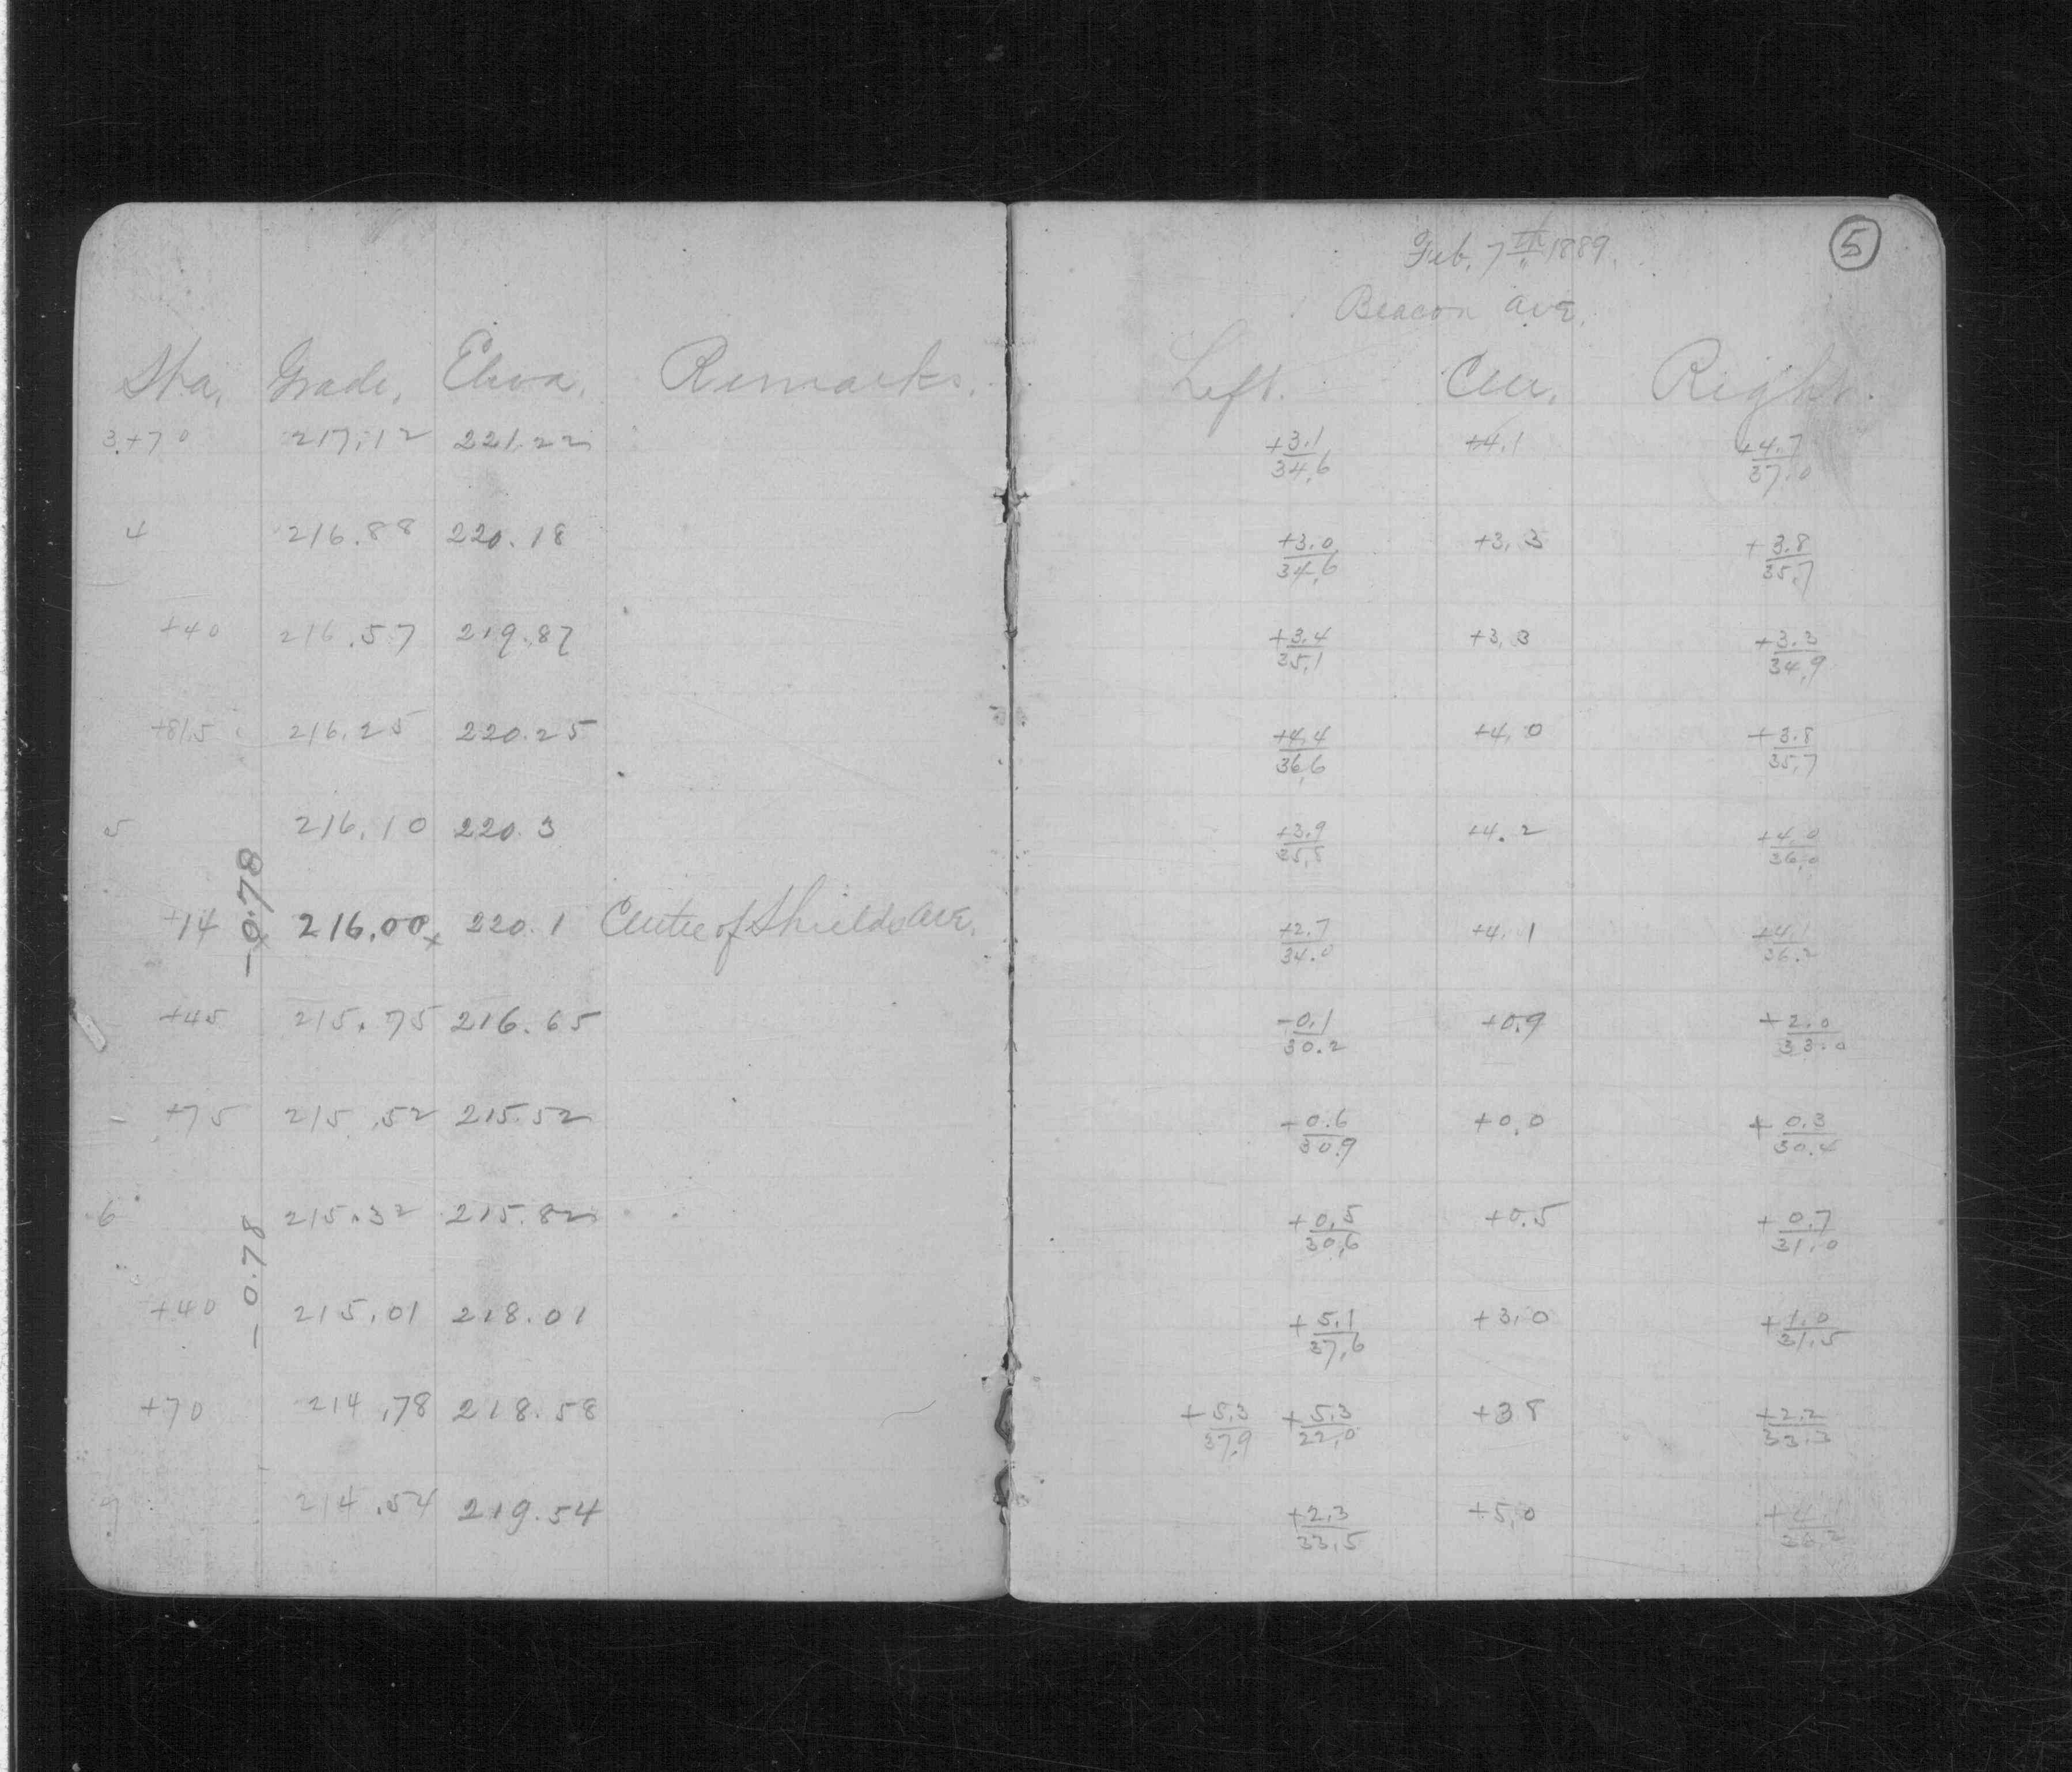 Feb. 7th 1889.
5
Beacon Ave.
Sta. Grade. Eleva. Remarks. Left. Cen. Right.
3+70 217.12 221.22 +3.1/34.6 +4.1 +4.7/37.0
4 216.88 220.18 +3.0/34.6 +3.3 +3.8/35.7
+40 216.57 219.87 +3.4/35.1 +3.3 +3.3/34.9
+81.5 216.25 220.25 +4.4/36.6 +4.0 +3.8/35.7
5 216.10 220.3 +3.9/35.8 +4.2 +4.0/36.0
+14 216.00 220.1 Centre of Shields Ave. +2.7/34.0 +4.1 +4.1/36.2
-0.78
+45 215.75 216.65 -0.1/30.2 +0.9 +2.0/33.0
+75 215.52 215.52 -0.6/30.9 +0.0 +0.3/30.4
6 215.32 215.82 +0.5/30.6 +0.5 +0.7/31.0
-0.78
+40 215.01 218.01 +5.1/37.6 +3.0 +1.0/31.5
+70 214.78 218.58 +5.3/37.9 +5.3/22.0 +3.8 +2.2/33.3
7 214.54 219.54 +2.3/33.5 +5.0 +4.1/36.2